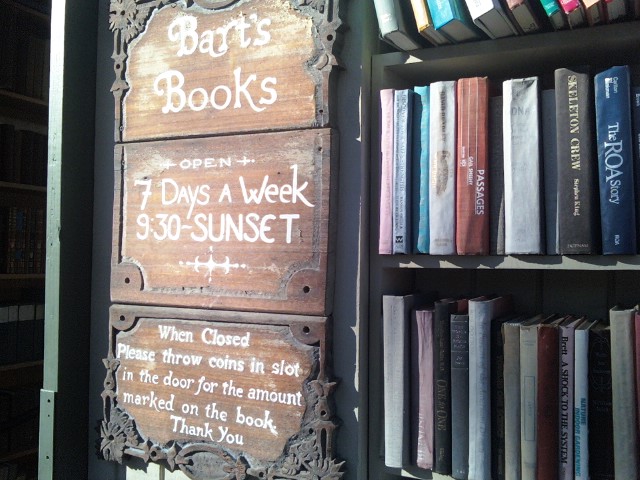 Bart's
Books
OPEN
7 Days A Week
9:30-SUNSET
When Closed
Please throw coins in slot
in the door for the amount
marked on the book.
Thank You
PASSAGES
SKELETON CREW
Stephen King
The ROA Story
A SHOCK TO THE SYSTEM